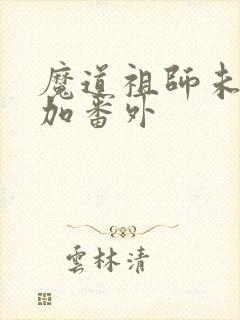 魔道祖師未
加番外
雲林清